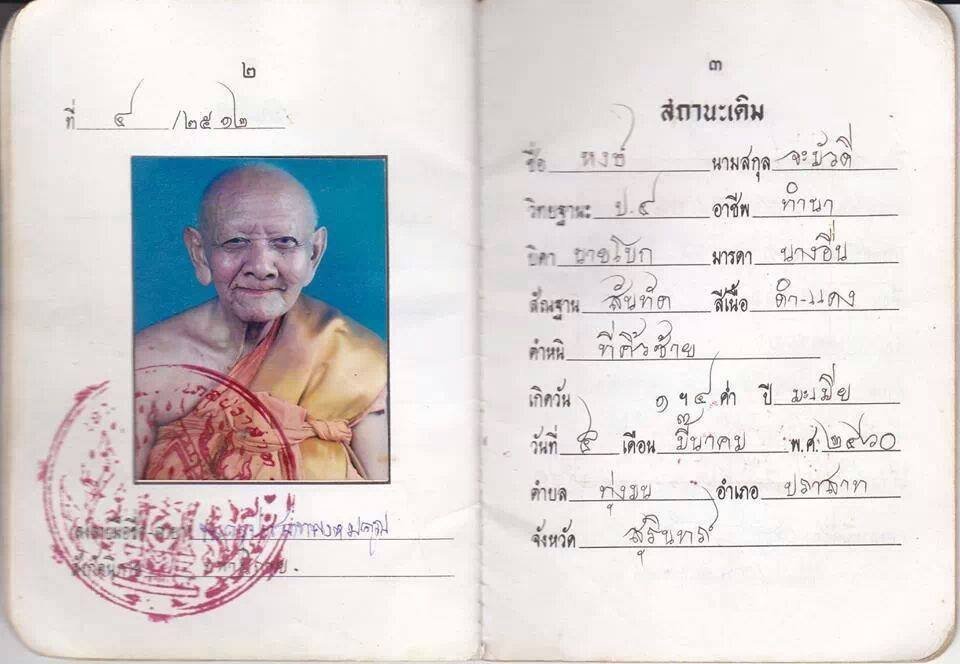 ๒
ที่ ๔ /๒๕๑๖
(ลงลายมือชื่อ
๓
สถานะเดิม
ชื่อ หงษ์ นามสกุล จะมัวดี
วิทยฐานะ ป.๔ อาชีพ ทำนา
บิดา นายโบก มารดา นางอื่น
สัณฐาน สันทัด สีเนื้อ ดำ-แดง
ตำหนิ ที่คิ้วซ้าย
เกิดวัน ๑ ฯ ๔ ค่ำ ปี มะเมีย
วันที่ ๕ เดือน มีนาคม พ.ศ. ๒๔๖๐
ตำบล ทุ่งมน อำเภอ ปราสาท
จังหวัด สุรินทร์